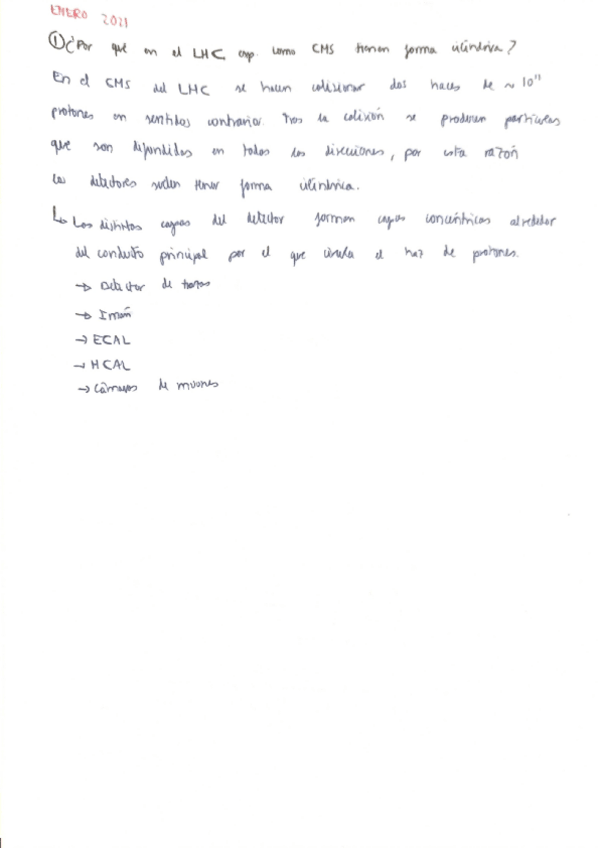 ENERO 2021
① ¿Por qué en el LHC exp. como CMS tienen forma cilíndrica?
En el CMS del LHC se hacen colisionar dos haces de ~ 10¹¹
protones en sentidos contrarios. Tras la colisión se producen partículas
que son difundidas en todas las direcciones, por esta razón
los detectores suelen tener forma cilíndrica.
↳ Las distintas capas del detector forman capas concéntricas alrededor
del conducto principal por el que circula el haz de protones.
→ Detector de trazas
→ Imán
→ ECAL
→ HCAL
→ Cámaras de muones